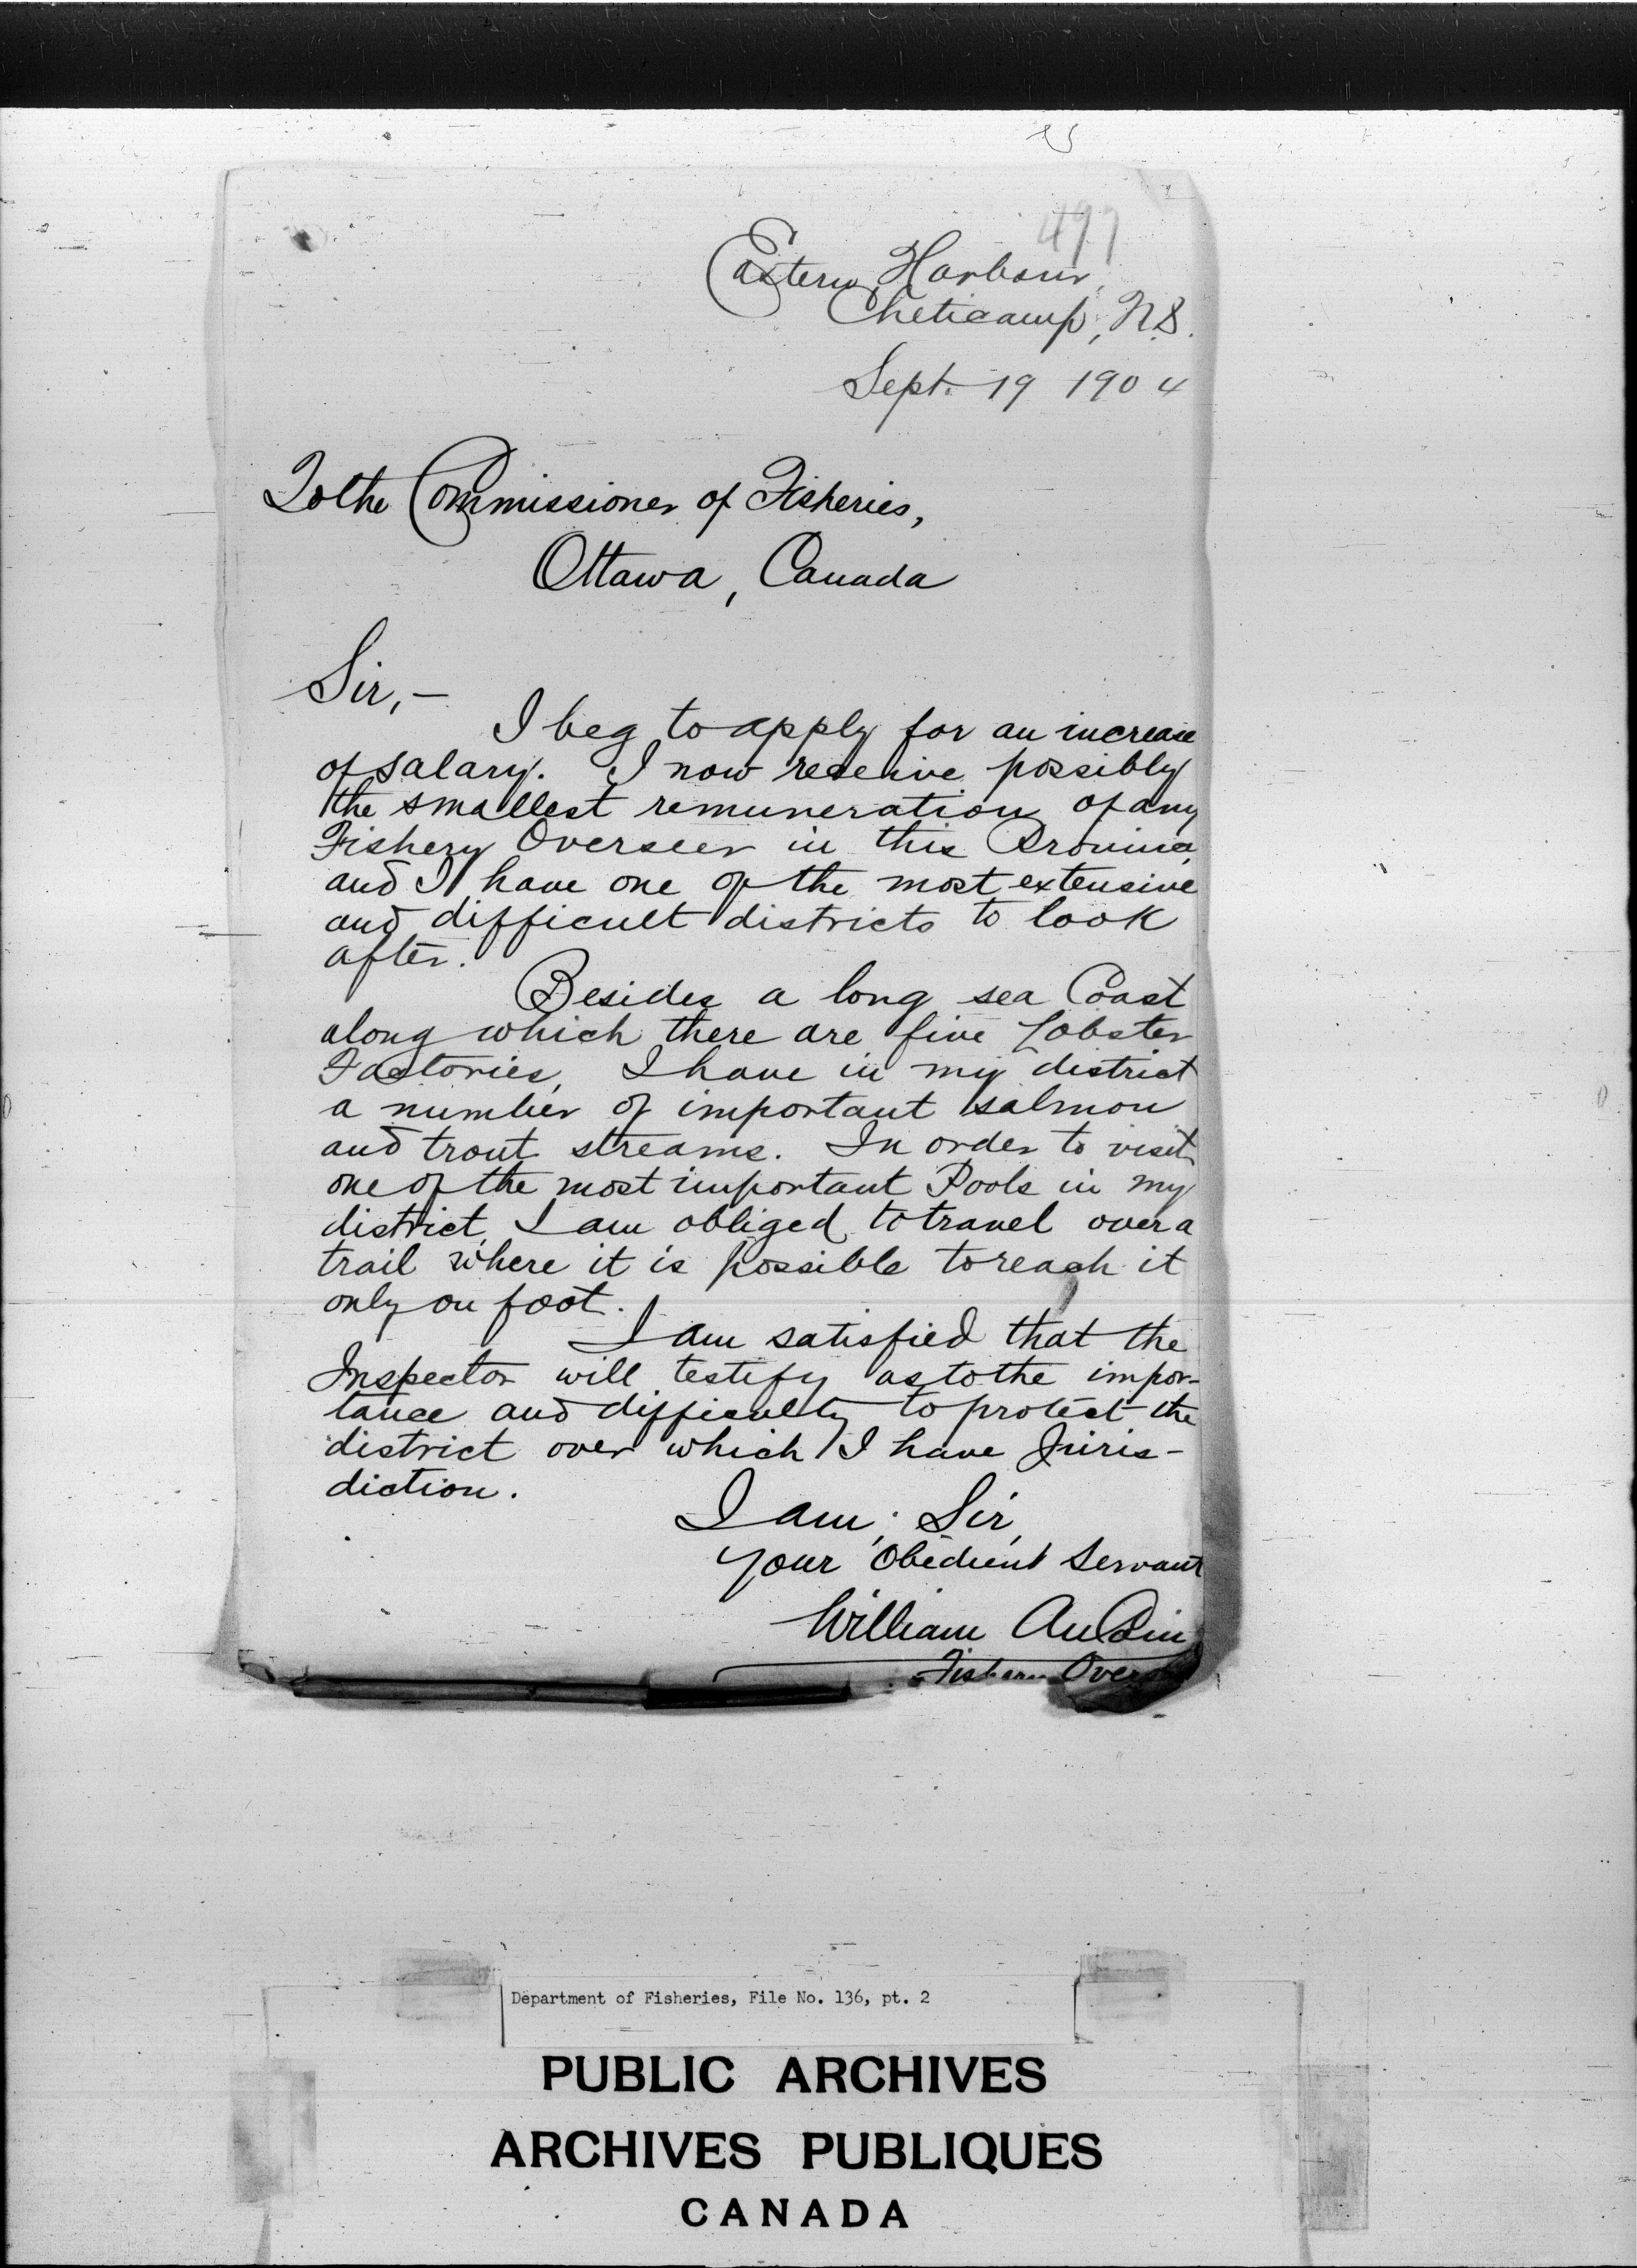 497
Eastern Harbour,
Cheticamp, N.S.
Sept. 19 1904
To the Commissioner of Fisheries,
Ottawa, Canada
Sir,—
I beg to apply for an increase
of salary. I now receive possibly
the smallest remuneration of any
Fishery Overseer in this Province,
and I have one of the most extensive
and difficult districts to look
after.
Besides a long sea Coast
along which there are five Lobster
Factories, I have in my district
a number of important salmon
and trout streams. In order to visit
one of the most important Pools in my
district, I am obliged to travel over a
trail where it is possible to reach it
only on foot.
I am satisfied that the
Inspector will testify as to the impor-
tance and difficulty to protect the
district over which I have Juris-
diction.
I am, Sir,
your Obedient Servant
William AuCoin
Fishery Overs
Department of Fisheries, File No. 136, pt. 2
PUBLIC ARCHIVES
ARCHIVES PUBLIQUES
CANADA